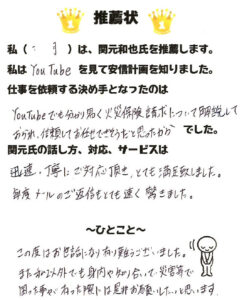 推薦状
私( )は、関元和也氏を推薦します。
私は YouTube を見て安信計画を知りました。
仕事を依頼する決め手となったのは
YouTubeでも分かり易く火災保険請求について解説して
おられ、信頼してお任せできそうだと思ったから でした。
関元氏の話し方、対応、サービスは
迅速、丁寧にご対応頂き、とても満足致しました。
毎度メールのご返信もとても速く驚きました。
〜ひとこと〜
この度はお世話になり有り難うございました。
また 以外でも身内や知り合いで災害等で
困った事や なった際には是非お願いしたいと思います。